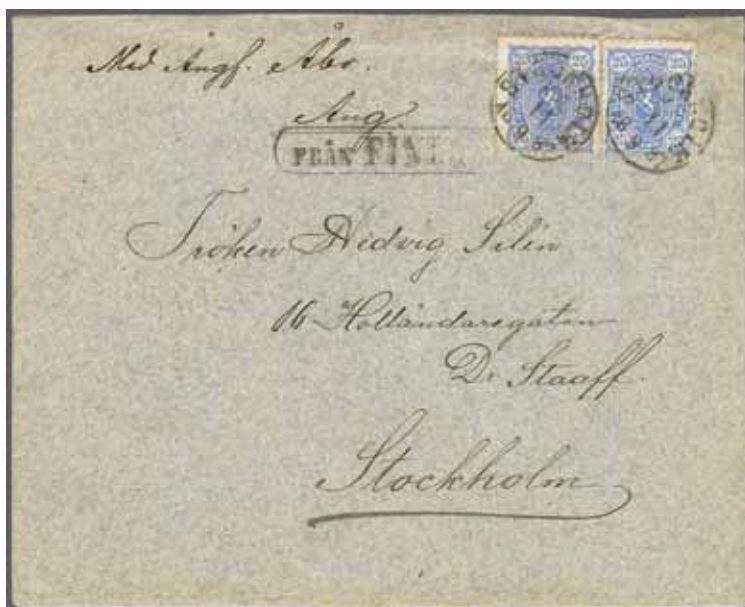 Med Ångf. Åbo.
25 25 25 25
Ang.
FRÅN FINL
Fröken Hedvig Silén
16 Holländaregatan
Dr Staaff.
Stockholm